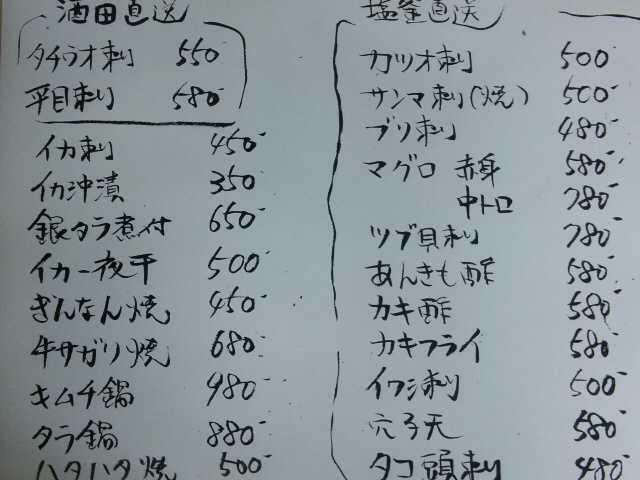 酒田直送
タチウオ刺 550
平目刺 580-
イカ刺 450-
イカ沖漬 350-
銀タラ煮付 650-
イカ一夜干 500-
ぎんなん焼 450-
牛サガリ焼 680-
キムチ鍋 980-
タラ鍋 880-
ハタハタ焼 500-
塩釜直送
カツオ刺 500-
サンマ刺(焼) 500-
ブリ刺 480-
マグロ 赤身 580-
中トロ 780-
ツブ貝刺 780-
あんきも酢 580-
カキ酢 580-
カキフライ 580-
イワシ刺 500-
穴子天 580-
タコ頭刺 480-